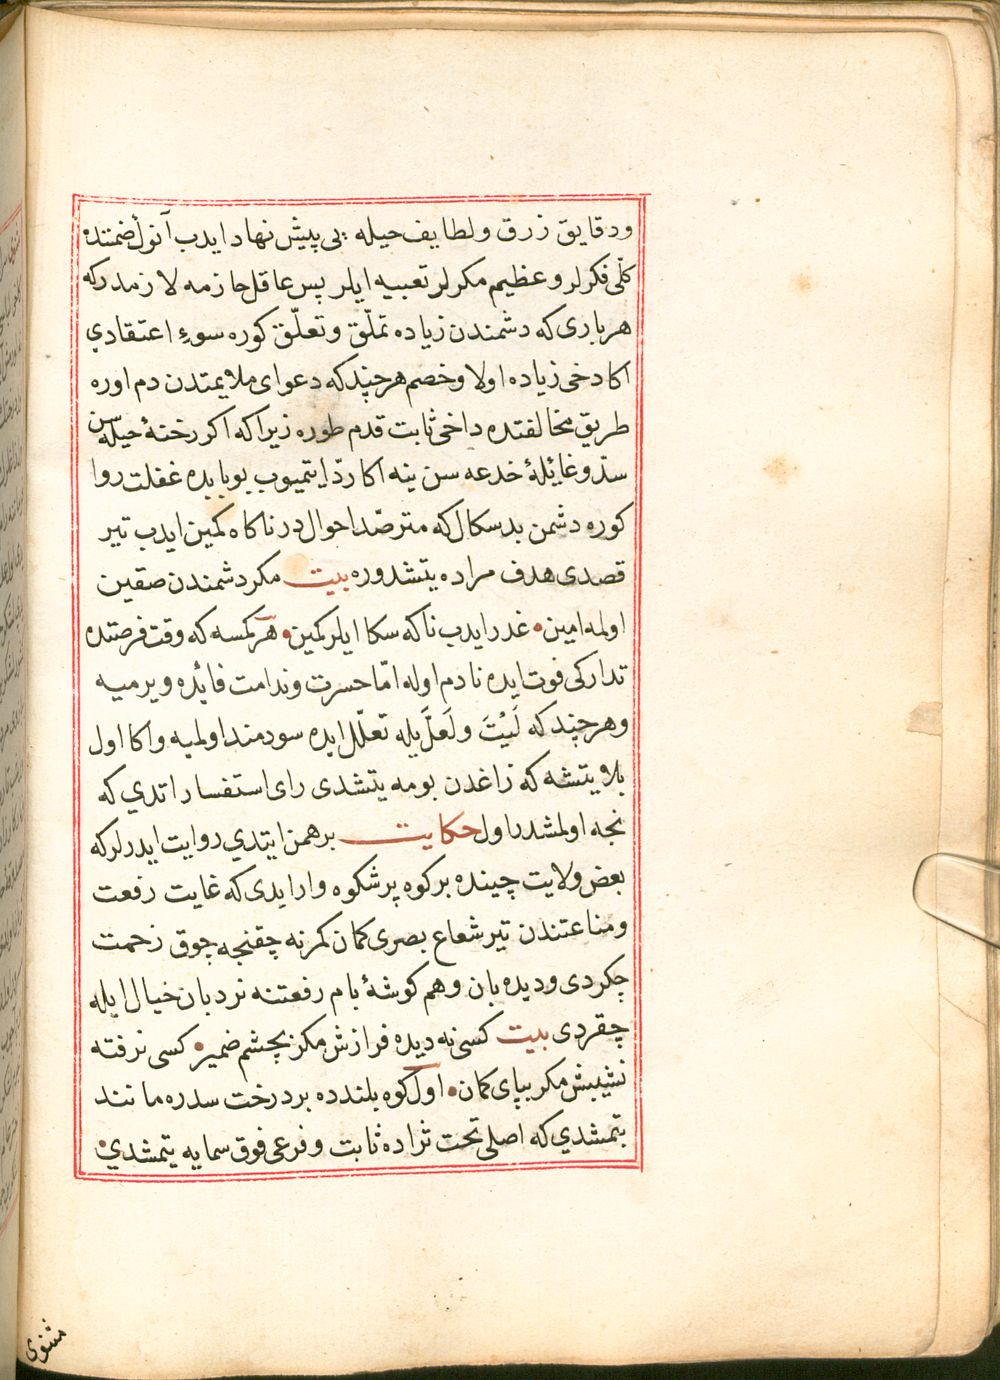 ودقايق زرق ولطايف حيله يى پيش نهاد ايدب آنوڭ ضمننده
كلّى فكرلر وعظيم مكرلر تعبيه ايلر پس عاقل حازمه لازمدركه
هربارى كه دشمندن زياده تملّق وتعلّق كوره سوءِ اعتقادي
اكا دخى زياده اولا وخصم هرچند كه دعواى ملايمتدن دم اوره
طريق مخالفتده داخى ثابت قدم طوره زيرا كه اكر رخنهٔ حيله سن
سدّ وغائلهٔ خدعه سن ينه اكا ردّ ايتميوب بو بابده غفلت روا
كوره دشمن بدسكال كه مترصّد احوالدر ناكاه كمين ايدب تير
قصدى هدف مراده يتشدوره بيت مكر دشمندن صقين
اولمه امين • غدر ايدب ناكه سكا ايلر كمين • هر كمسه كه وقت فرصتده
تداركى فوت ايده نادم اوله امّا حسرت وندامت فائده ويرميه
وهرچند كه لَيْتَ ولَعَلَّ يله تعلّل ايده سودمند اولميه واكا اول
بلا يتشه كه زاغدن بومه يتشدى راى استفسار اتدي كه
نجه اولمشدر اول حكايت برهمن ايتدي روايت ايدرلركه
بعض ولايت چينده بر كوه پرشكوه وارايدى كه غايت رفعت
ومناعتندن تير شعاع بصرى كمان كمرنه چقنجه چوق زحمت
چكردى وديده بان وهم كوشهٔ بام رفعتنه نردبان خيال ايله
چقردى بيت كسى نه ديده فرازش مكر بچشم ضمير • كسى نرفته
نشيبش مكر بپاى كمان • اول كوه بلندده بر درخت سدره مانند
بتمشدي كه اصلى تحت ثراده ثابت وفرعى فوق سمايه يتمشدي •
مثنوى